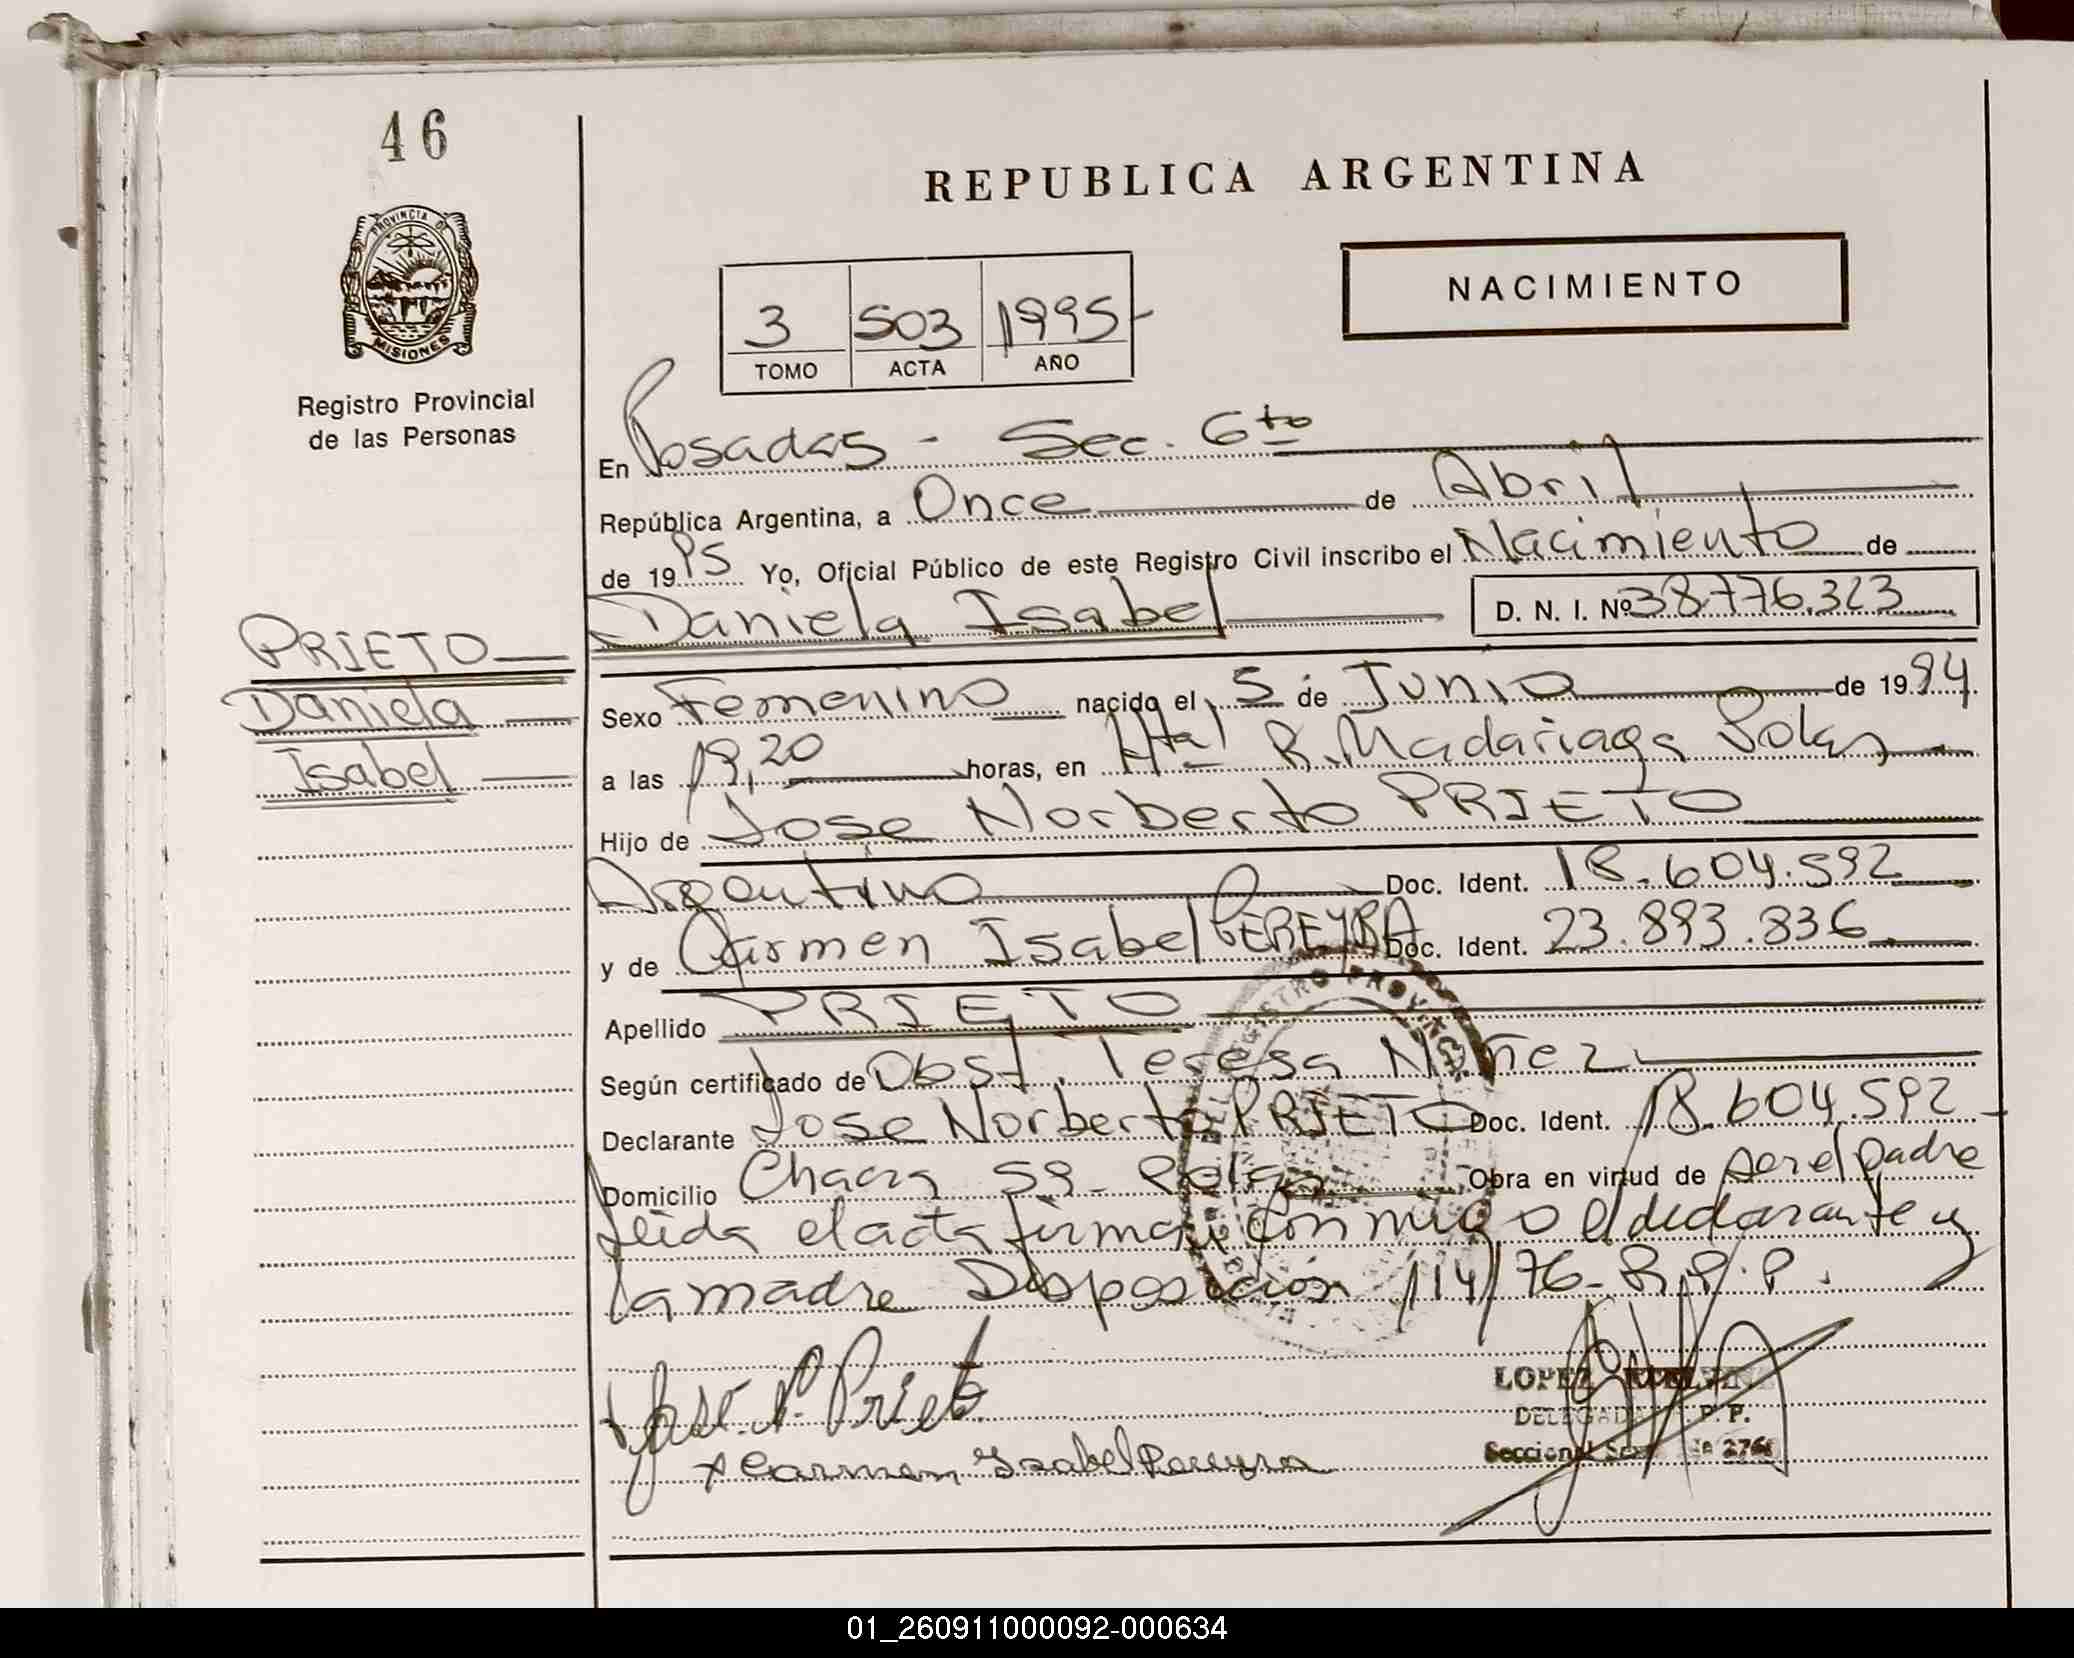 46
REPUBLICA ARGENTINA
PROVINCIA DE
MISIONES
Registro Provincial
de las Personas
NACIMIENTO
3 503 1995-
TOMO ACTA AÑO
En Posadas - Sec. 6to
República Argentina, a Once de Abril
de 1995 Yo, Oficial Público de este Registro Civil inscribo el Nacimiento de
Daniela Isabel D. N. I. Nº 38.776.323
PRIETO
Daniela
Isabel
Sexo Femenino nacido el 5 de Junio de 1994
a las 19,20 horas, en Htal R. Madariaga Pdas
Hijo de Jose Norberto PRIETO
Argentino Doc. Ident. 18.604.592
y de Carmen Isabel PEREYRA Doc. Ident. 23.893.836
Apellido PRIETO
Según certificado de Obst. Teresa Nuñez
Declarante Jose Norberto PRIETO Doc. Ident. 18.604.592
Domicilio Chacra 59 - Pdas Obra en virtud de ser el padre
Leida el acta firman conmigo el declarante y
la madre Disposición 114/76 - R.P.P.
Jose N. Prieto
x Carmen Isabel Pereyra
LOPEZ
DELEGADA P. P.
Seccional
01_260911000092-000634